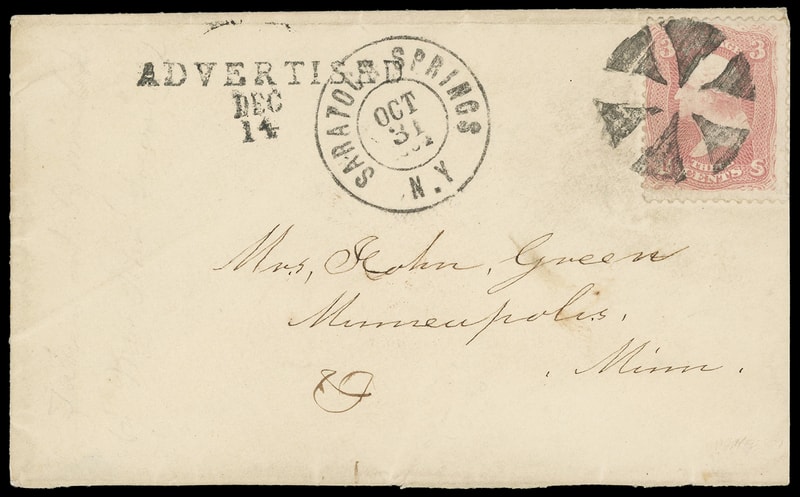 ADVERTISED
DEC
14
SARATOGA SPRINGS
OCT
31
N.Y
3 3
CENTS
Mrs, John, Green
Minneapolis.
Minn.